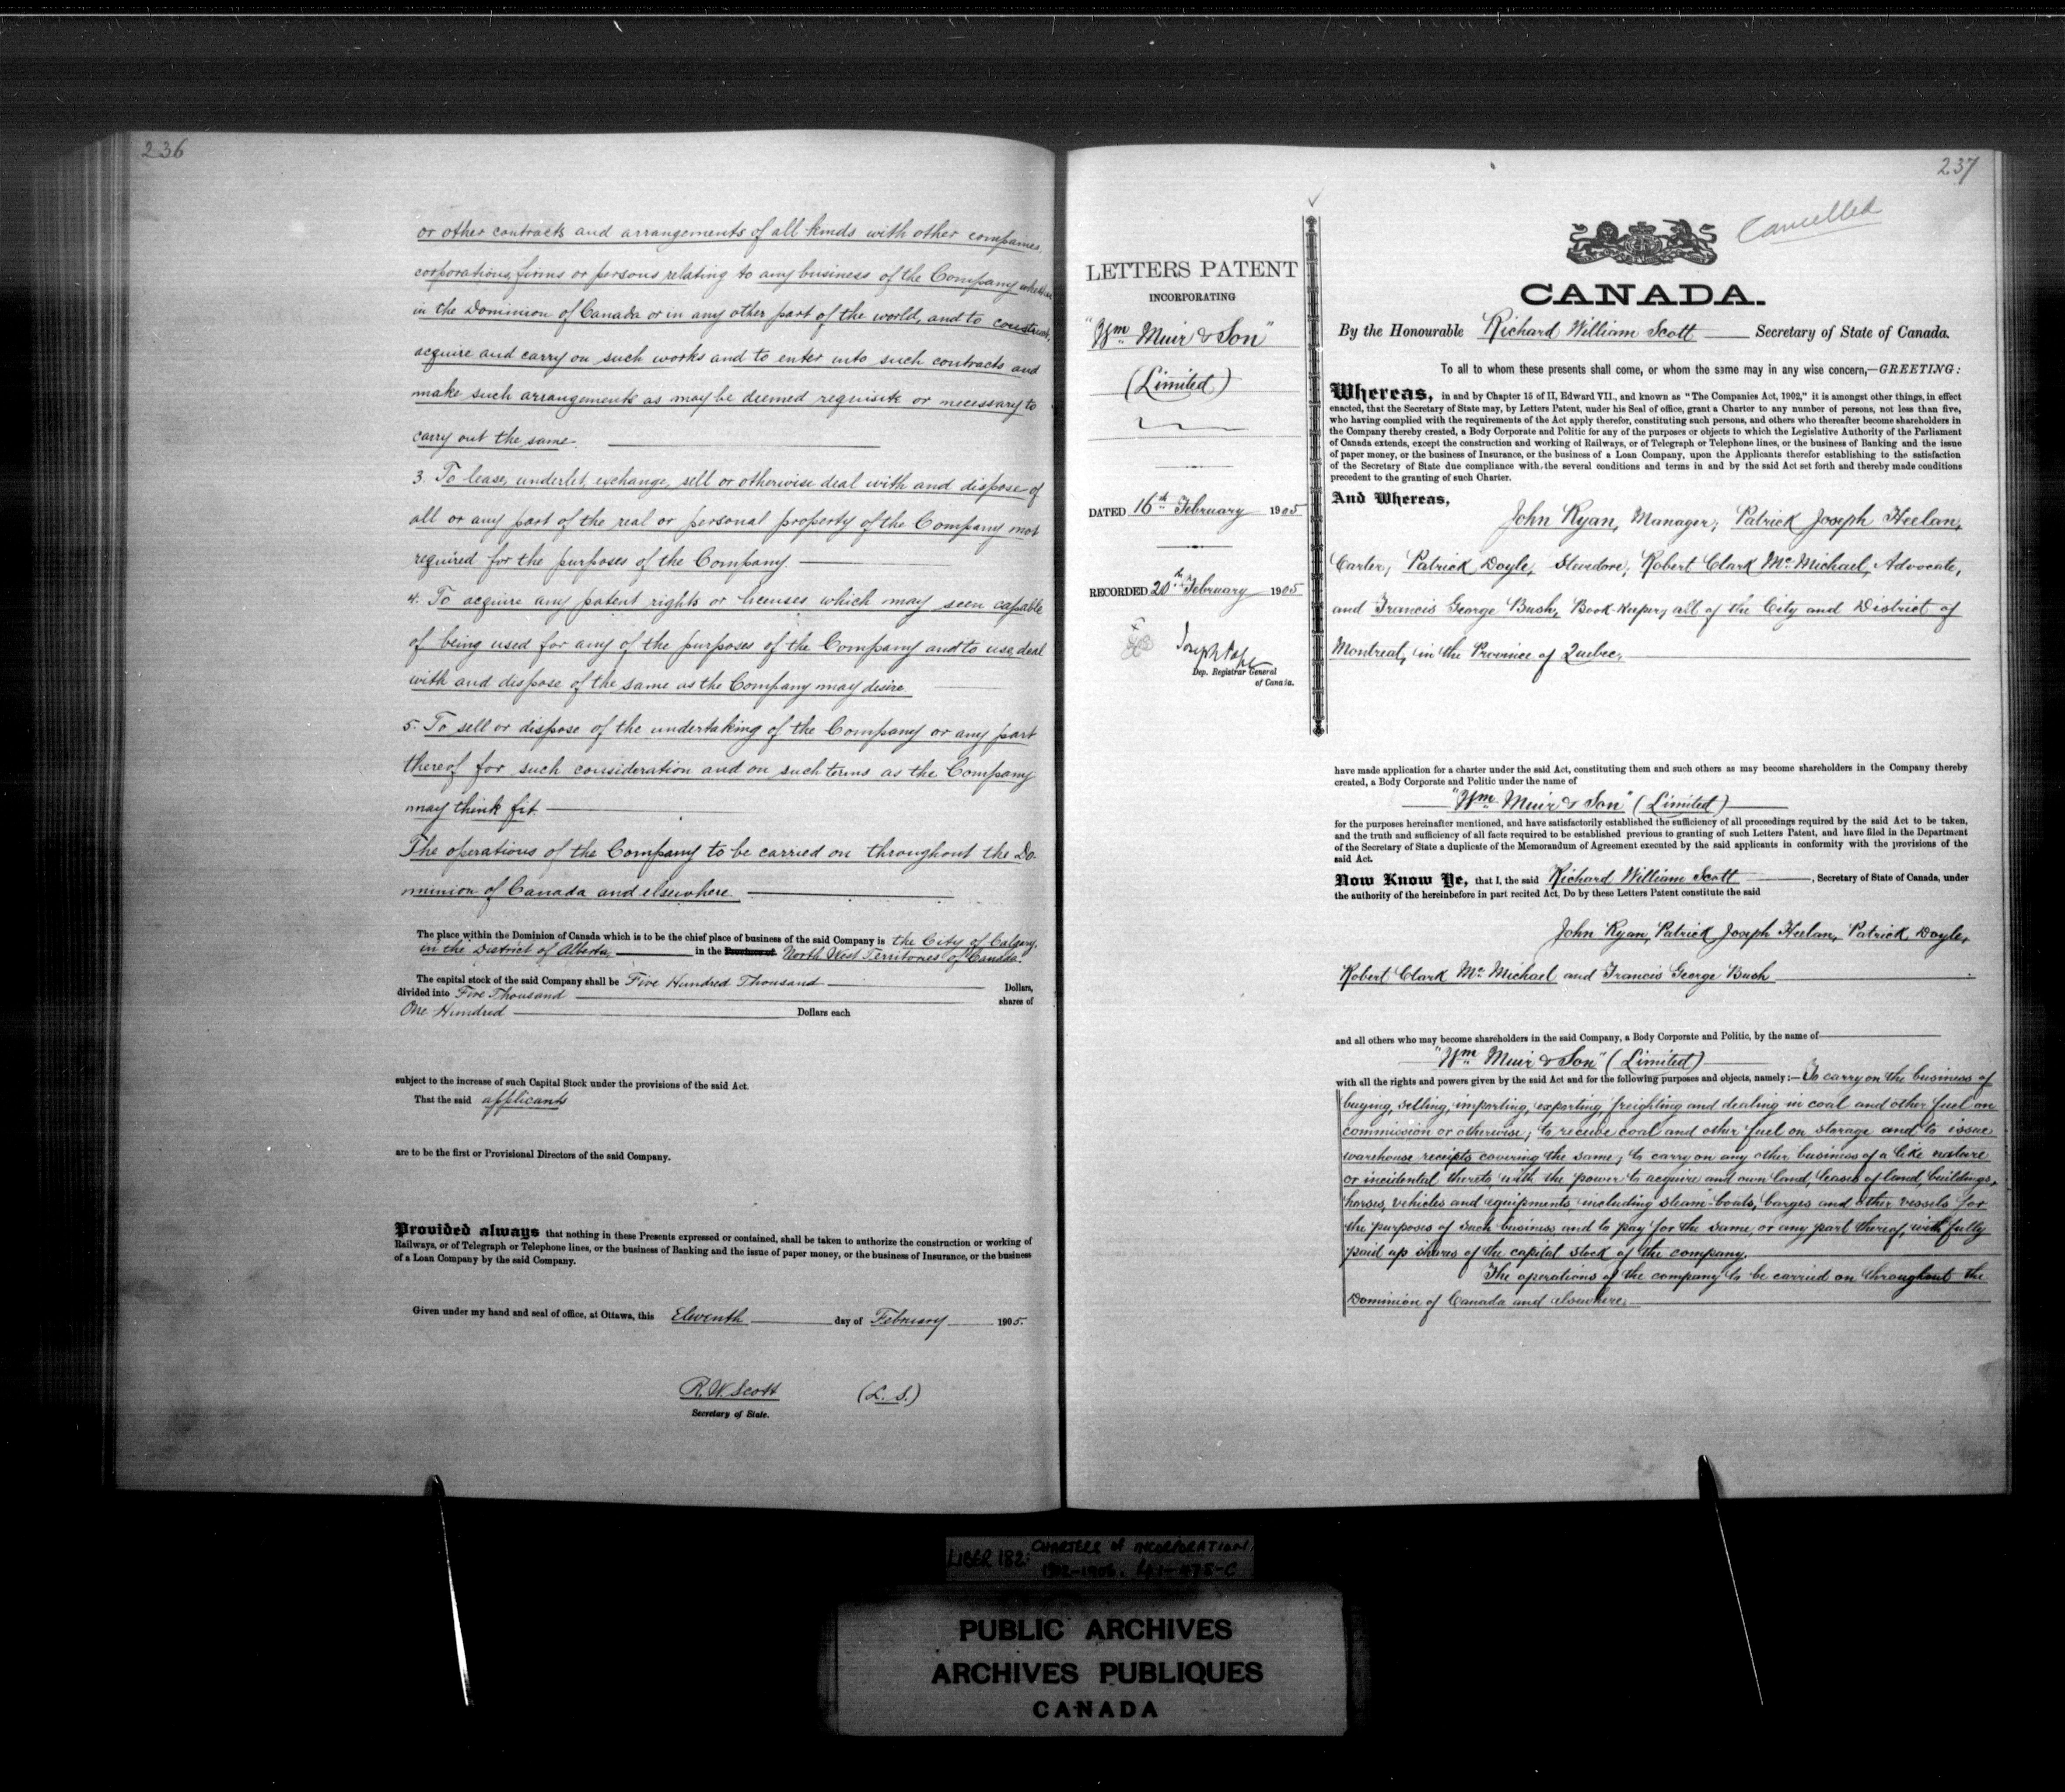 236
or other contracts and arrangements of all kinds with other companies,
corporations, firms or persons relating to any business of the Company whether
in the Dominion of Canada or in any other part of the world, and to construct,
acquire and carry on such works and to enter into such contracts and
make such arrangements as may be deemed requisite or necessary to
carry out the same.
3. To lease, underlet, exchange, sell or otherwise deal with and dispose of
all or any part of the real or personal property of the Company not
required for the purposes of the Company.
4. To acquire any patent rights or licenses which may seem capable
of being used for any of the purposes of the Company and to use, deal
with and dispose of the same as the Company may desire.
5. To sell or dispose of the undertaking of the Company or any part
thereof for such consideration and on such terms as the Company
may think fit.
The operations of the Company to be carried on throughout the Do-
minion of Canada and elsewhere.
The place within the Dominion of Canada which is to be the chief place of business of the said Company is the City of Calgary,
in the District of Alberta, in the Province of North West Territories of Canada.
The capital stock of the said Company shall be Five Hundred Thousand Dollars,
divided into Five Thousand shares of
One Hundred Dollars each
subject to the increase of such Capital Stock under the provisions of the said Act.
That the said applicants
are to be the first or Provisional Directors of the said Company.
Provided always that nothing in these Presents expressed or contained, shall be taken to authorize the construction or working of
Railways, or of Telegraph or Telephone lines, or the business of Banking and the issue of paper money, or the business of Insurance, or the business
of a Loan Company by the said Company.
Given under my hand and seal of office, at Ottawa, this Eleventh day of February 1905.
R. W. Scott (L. S.)
Secretary of State.
237
Cancelled
LETTERS PATENT
INCORPORATING
"Wm Muir & Son"
(Limited)
DATED 16th February 1905
RECORDED 20th February 1905
Joseph Pope
Dep. Registrar General
of Canada.
CANADA.
By the Honourable Richard William Scott Secretary of State of Canada.
To all to whom these presents shall come, or whom the same may in any wise concern,—GREETING:
Whereas, in and by Chapter 15 of II, Edward VII., and known as "The Companies Act, 1902," it is amongst other things, in effect
enacted, that the Secretary of State may, by Letters Patent, under his Seal of office, grant a Charter to any number of persons, not less than five,
who having complied with the requirements of the Act apply therefor, constituting such persons, and others who thereafter become shareholders in
the Company thereby created, a Body Corporate and Politic for any of the purposes or objects to which the Legislative Authority of the Parliament
of Canada extends, except the construction and working of Railways, or of Telegraph or Telephone lines, or the business of Banking and the issue
of paper money, or the business of Insurance, or the business of a Loan Company, upon the Applicants therefor establishing to the satisfaction
of the Secretary of State due compliance with the several conditions and terms in and by the said Act set forth and thereby made conditions
precedent to the granting of such Charter.
And Whereas,
John Ryan, Manager; Patrick Joseph Heelan,
Carter; Patrick Doyle, Stevedore; Robert Clark McMichael, Advocate,
and Francis George Bush, Book-keeper, all of the City and District of
Montreal, in the Province of Quebec,
have made application for a charter under the said Act, constituting them and such others as may become shareholders in the Company thereby
created, a Body Corporate and Politic under the name of
"Wm Muir & Son" (Limited)
for the purposes hereinafter mentioned, and have satisfactorily established the sufficiency of all proceedings required by the said Act to be taken,
and the truth and sufficiency of all facts required to be established previous to granting of such Letters Patent, and have filed in the Department
of the Secretary of State a duplicate of the Memorandum of Agreement executed by the said applicants in conformity with the provisions of the
said Act.
Now Know Ye, that I, the said Richard William Scott, Secretary of State of Canada, under
the authority of the hereinbefore in part recited Act, Do by these Letters Patent constitute the said
John Ryan, Patrick Joseph Heelan, Patrick Doyle,
Robert Clark McMichael and Francis George Bush
and all others who may become shareholders in the said Company, a Body Corporate and Politic, by the name of
"Wm Muir & Son" (Limited)
with all the rights and powers given by the said Act and for the following purposes and objects, namely:—To carry on the business of
buying, selling, importing, exporting, freighting and dealing in coal and other fuel on
commission or otherwise; to receive coal and other fuel on storage and to issue
warehouse receipts covering the same; to carry on any other business of a like nature
or incidental thereto, with the power to acquire and own land, leases of land, buildings,
horses, vehicles and equipments including steam-boats, barges and other vessels for
the purposes of such business and to pay for the same, or any part thereof, with fully
paid up shares of the capital stock of the company.
The operations of the company to be carried on throughout the
Dominion of Canada and elsewhere.
LIBER 182: CHARTERS OF INCORPORATION,
1902-1906.
PUBLIC ARCHIVES
ARCHIVES PUBLIQUES
CANADA